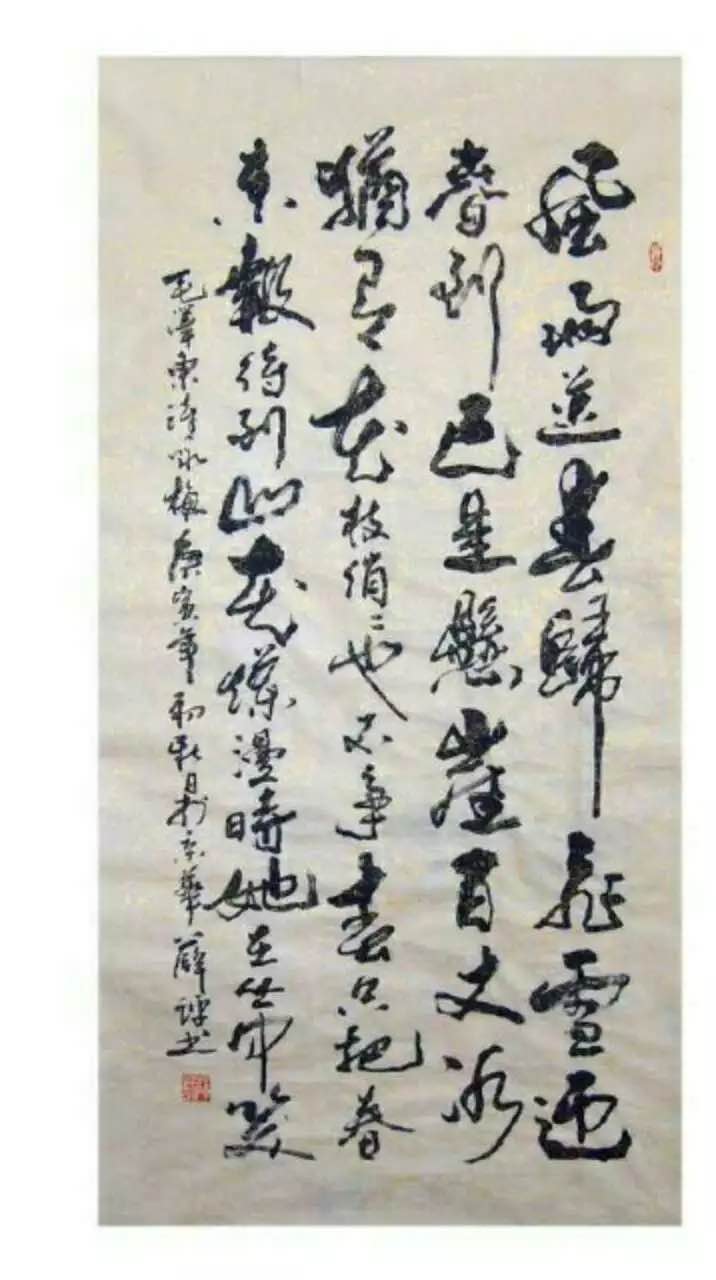 風雨送春歸飛雪迎
春到已是懸崖百丈冰
猶有花枝俏〻也不爭春只把春
來報待到山花爛漫時她在丛中笑
毛澤東詞咏梅庚寅年初秋日於京華薛 书